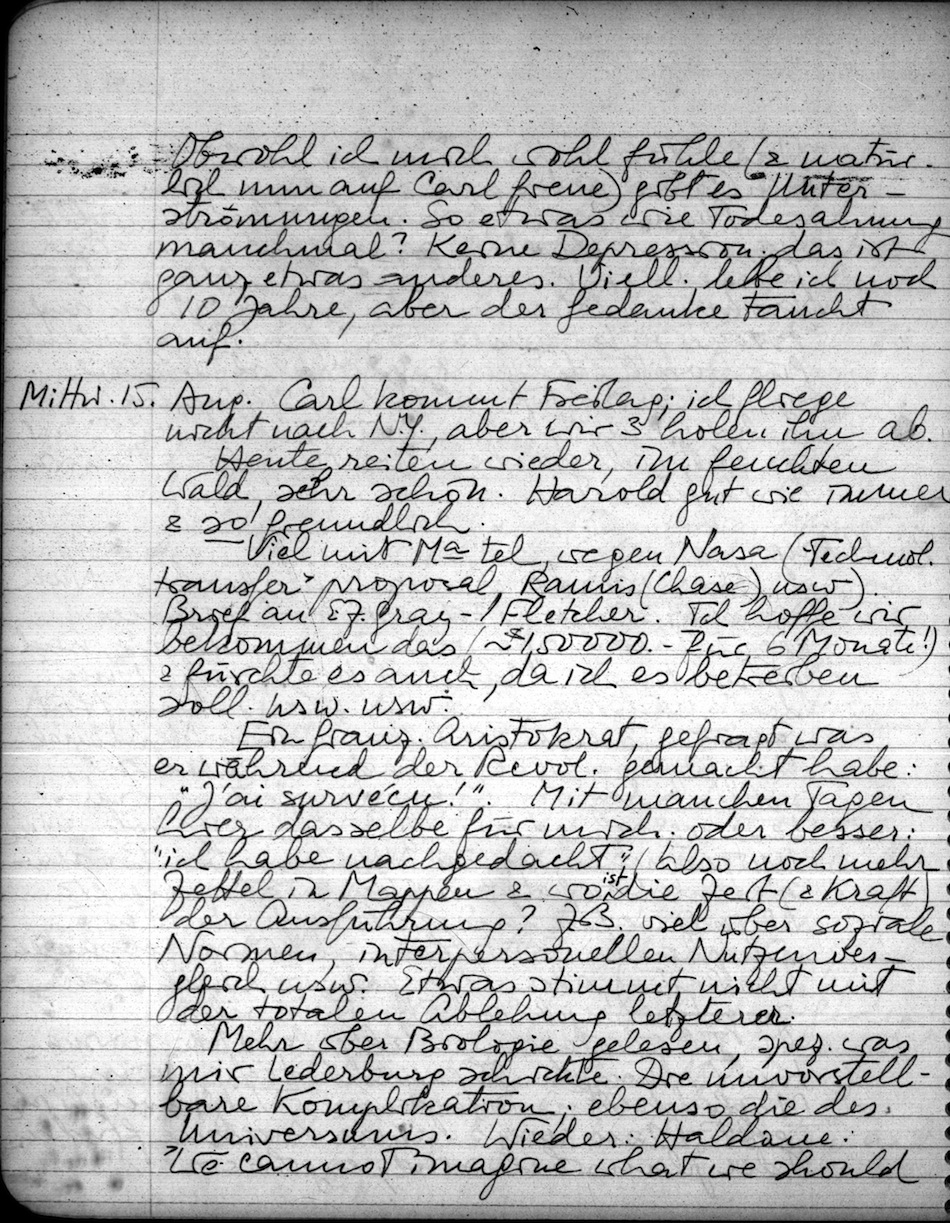 Obwohl ich mich wohl fühle (& natür-
lich nun auf Carl freue) gibt es Unter-
strömungen. So etwas wie Todesahnung
manchmal? Keine Depression. das ist
ganz etwas anderes. Viell. lebe ich noch
10 Jahre, aber der Gedanke taucht
auf.
Mittw. 15. Aug. Carl kommt Freitag; ich fliege
nicht nach N.Y., aber wir 3 holen ihn ab.
Heute reiten wieder, im feuchten
Wald, sehr schön. Harold gut wie immer
& so freundlich.
Viel mit Ma tel. wegen Nasa (Technol.
transfer" proposal, (Chase) usw).
Brief an Gray - / Fletcher. Ich hoffe wir
bekommen das (~$1,50000.- für 6 Monate!)
& fürchte es auch, da ich es betreiben
soll. usw. usw.
Ein franz. Aristokrat, gefragt was
er während der Revol. gemacht habe:
"J'ai survécu!". Mit manchen Tagen
hier dasselbe für mich. oder besser:
"ich habe nachgedacht" (also noch mehr
Zettel in Mappen & wo ist die Zeit (& Kraft)
der Ausführung? ZB. viel über soziale
Normen, interpersonellen Nutzenver-
gleich usw. Etwas stimmt nicht mit
der totalen Ablehnung letzterer.
Mehr über Biologie gelesen, spez. was
mir Lederburg schickte. Die unvorstell-
bare Komplikation; ebenso die des
Universums. Wieder: Haldane:
"We cannot imagine what we should